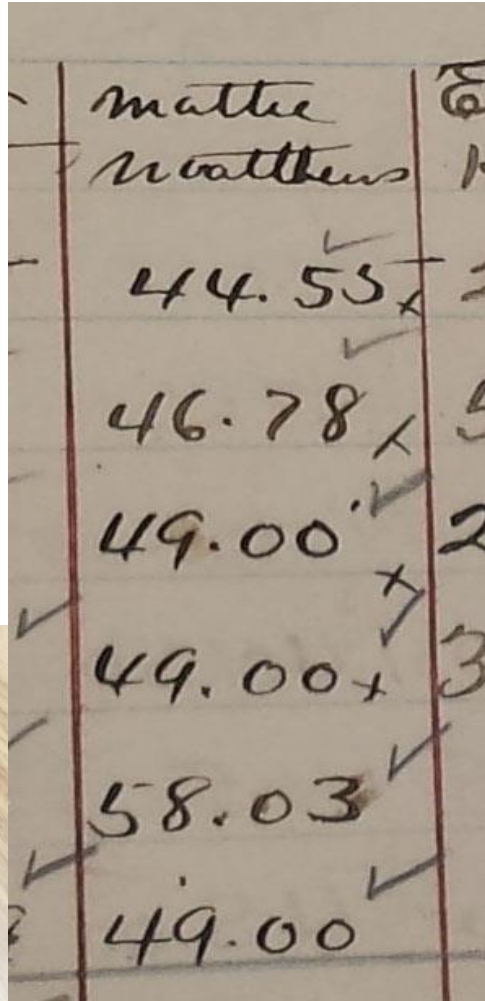 Mattie
Matthews
44.55 x
46.78 x
49.00 x
49.00 x
58.03
49.00